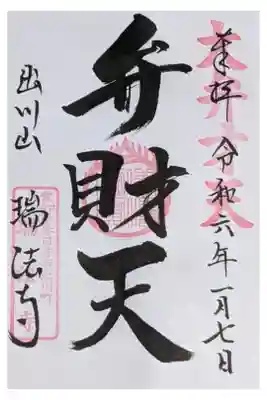 奉拝 令和六年一月七日
弁財天
出川山
瑞法寺